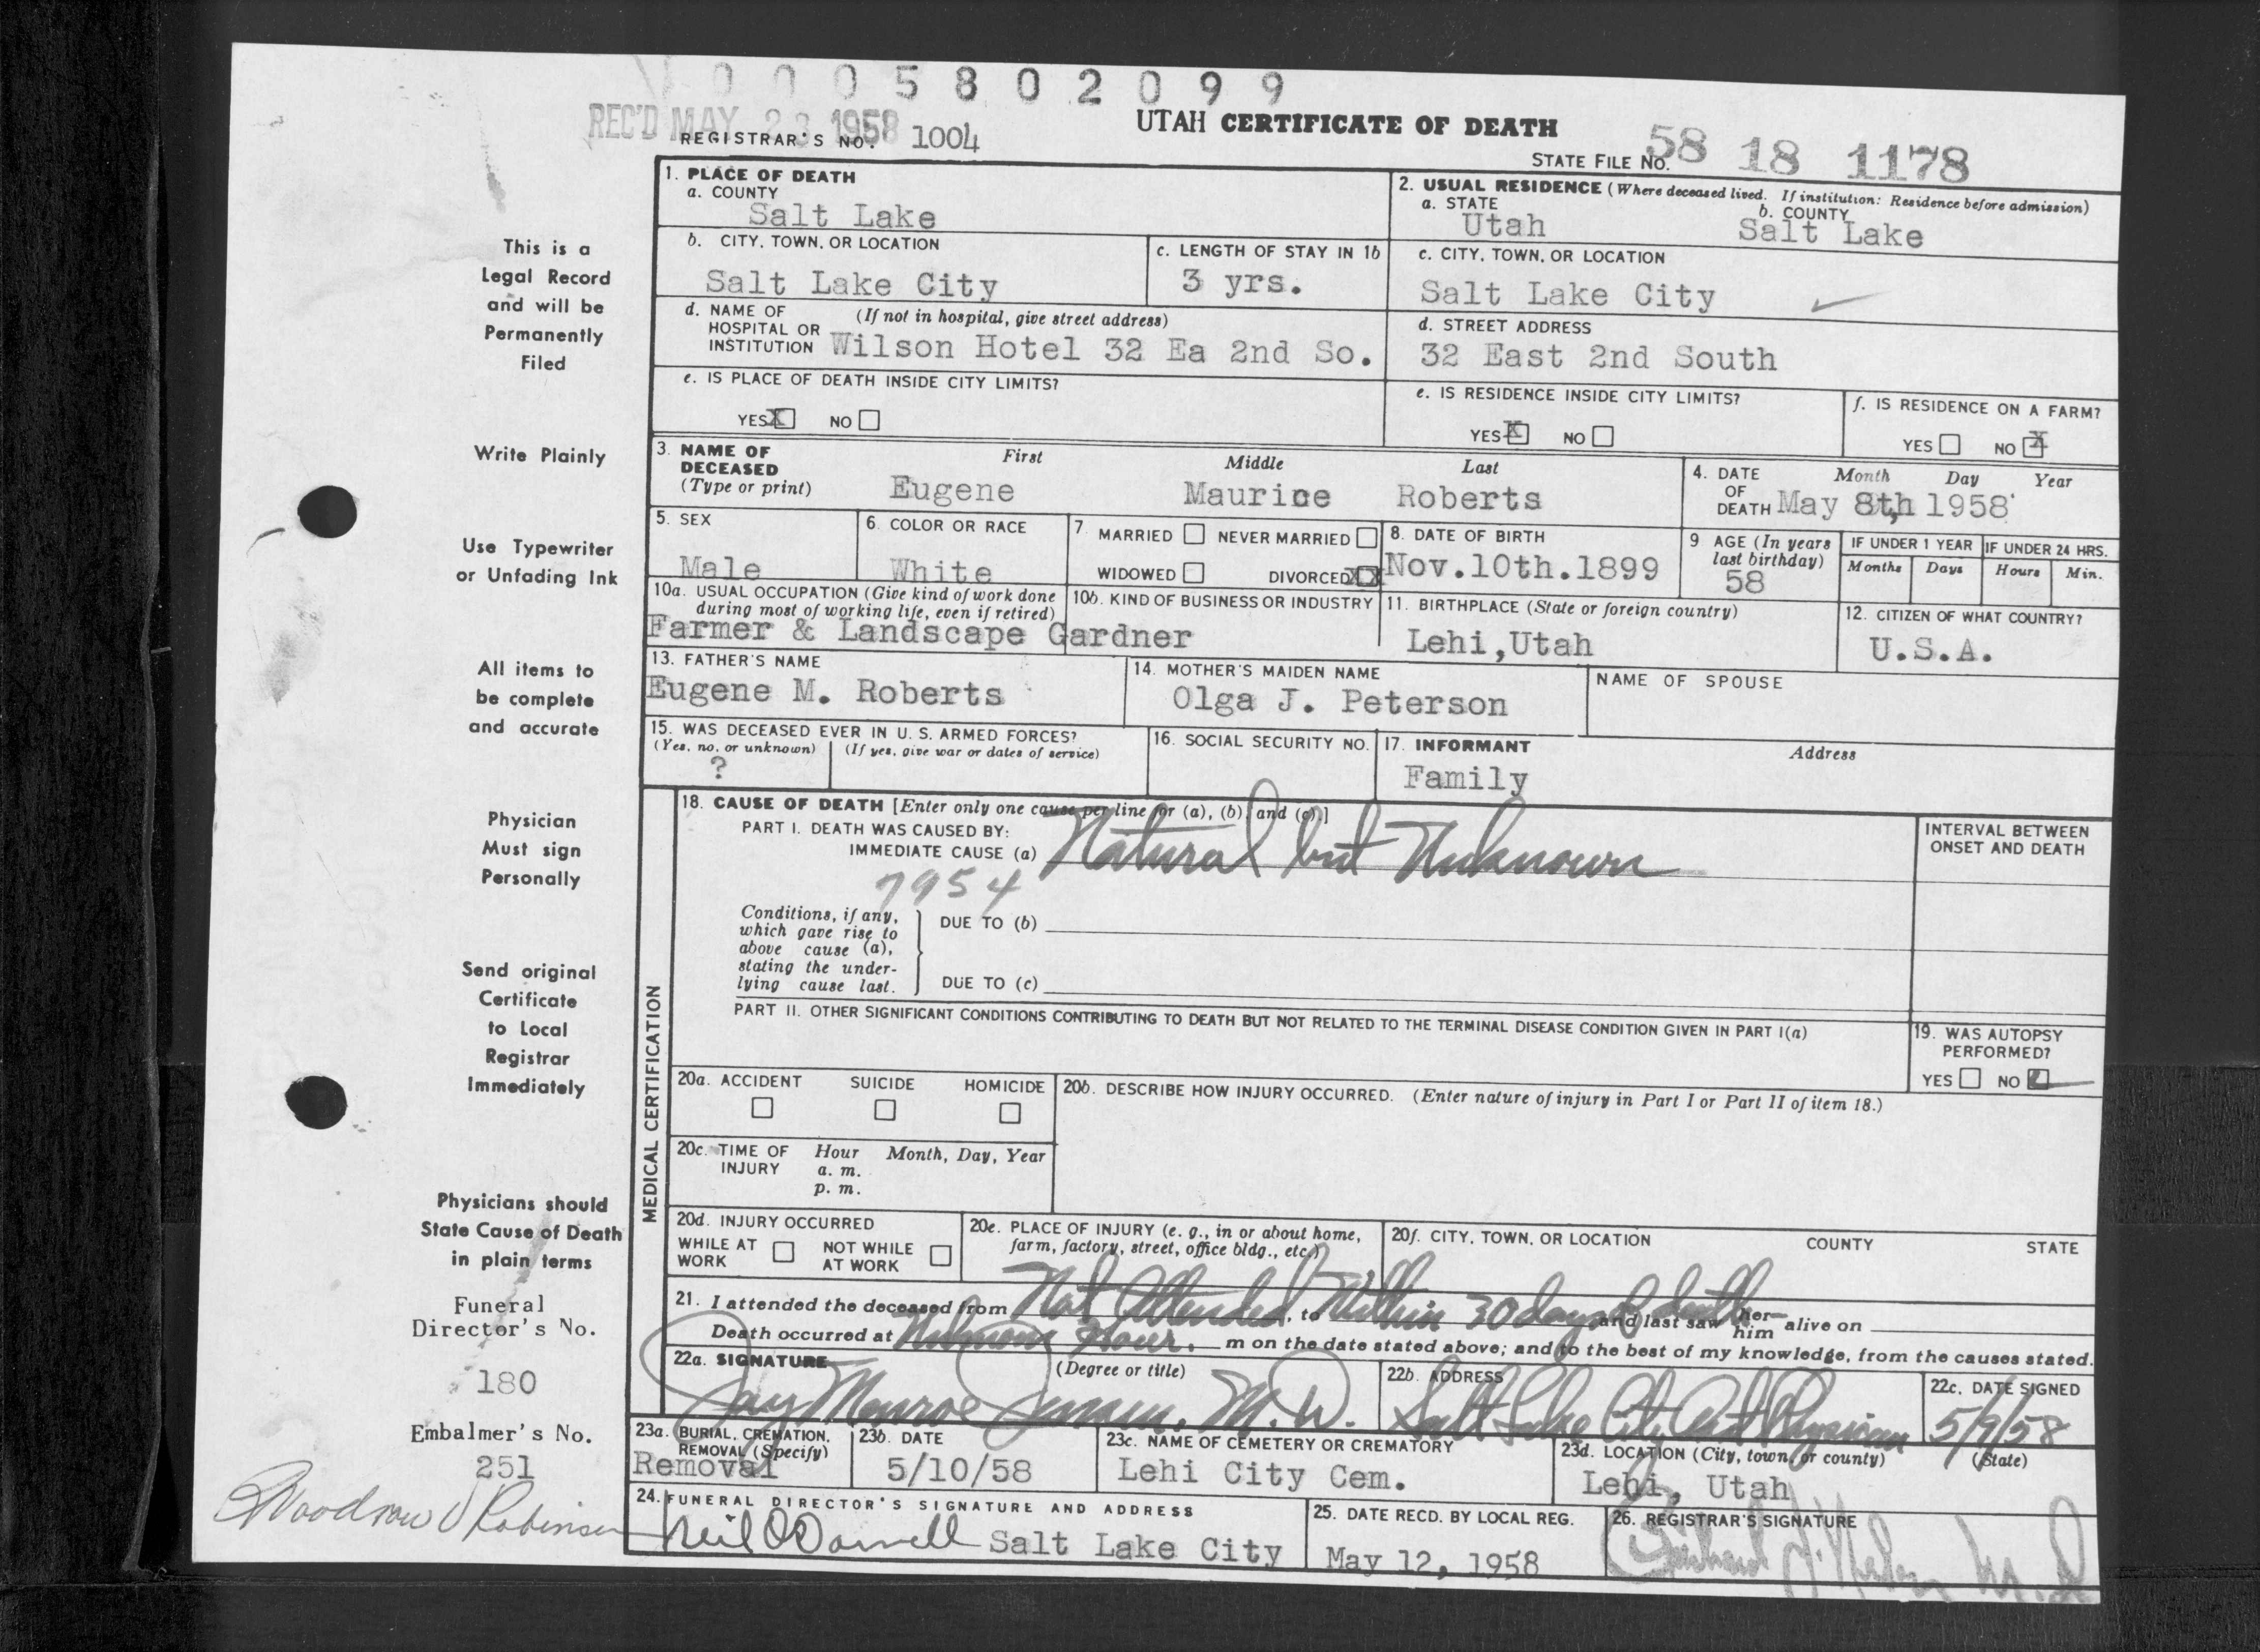 0 0 0 5 8 0 2 0 9 9
REC'D MAY 23 1958
UTAH CERTIFICATE OF DEATH
REGISTRAR'S NO. 1004
STATE FILE NO. 58 18 1178
1. PLACE OF DEATH
a. COUNTY
Salt Lake
2. USUAL RESIDENCE (Where deceased lived. If institution: Residence before admission)
a. STATE
Utah
b. COUNTY
Salt Lake
b. CITY, TOWN, OR LOCATION
Salt Lake City
c. LENGTH OF STAY IN 1b
3 yrs.
c. CITY, TOWN, OR LOCATION
Salt Lake City
d. NAME OF HOSPITAL OR INSTITUTION
(If not in hospital, give street address)
Wilson Hotel 32 Ea 2nd So.
d. STREET ADDRESS
32 East 2nd South
e. IS PLACE OF DEATH INSIDE CITY LIMITS?
YES X NO
e. IS RESIDENCE INSIDE CITY LIMITS?
YES X NO
f. IS RESIDENCE ON A FARM?
YES NO X
3. NAME OF DECEASED
(Type or print)
First Middle Last
Eugene Maurice Roberts
4. DATE OF DEATH
Month Day Year
May 8th, 1958
5. SEX
Male
6. COLOR OR RACE
White
7. MARRIED NEVER MARRIED
WIDOWED DIVORCED XX
8. DATE OF BIRTH
Nov.10th.1899
9 AGE (In years last birthday)
58
IF UNDER 1 YEAR
Months Days
IF UNDER 24 HRS.
Hours Min.
10a. USUAL OCCUPATION (Give kind of work done during most of working life, even if retired)
10b. KIND OF BUSINESS OR INDUSTRY
Farmer & Landscape Gardner
11. BIRTHPLACE (State or foreign country)
Lehi,Utah
12. CITIZEN OF WHAT COUNTRY?
U.S.A.
13. FATHER'S NAME
Eugene M. Roberts
14. MOTHER'S MAIDEN NAME
Olga J. Peterson
NAME OF SPOUSE
15. WAS DECEASED EVER IN U. S. ARMED FORCES?
(Yes, no, or unknown) (If yes, give war or dates of service)
?
16. SOCIAL SECURITY NO.
17. INFORMANT Address
Family
MEDICAL CERTIFICATION
18. CAUSE OF DEATH [Enter only one cause per line for (a), (b), and (c).]
PART I. DEATH WAS CAUSED BY:
IMMEDIATE CAUSE (a) Natural but Unknown
7954
INTERVAL BETWEEN ONSET AND DEATH
Conditions, if any, which gave rise to above cause (a), stating the underlying cause last.
DUE TO (b)
DUE TO (c)
PART II. OTHER SIGNIFICANT CONDITIONS CONTRIBUTING TO DEATH BUT NOT RELATED TO THE TERMINAL DISEASE CONDITION GIVEN IN PART I(a)
19. WAS AUTOPSY PERFORMED?
YES NO
20a. ACCIDENT SUICIDE HOMICIDE
20b. DESCRIBE HOW INJURY OCCURRED. (Enter nature of injury in Part I or Part II of item 18.)
20c. TIME OF INJURY
Hour Month, Day, Year
a. m.
p. m.
20d. INJURY OCCURRED
WHILE AT WORK NOT WHILE AT WORK
20e. PLACE OF INJURY (e. g., in or about home, farm, factory, street, office bldg., etc.)
20f. CITY, TOWN, OR LOCATION COUNTY STATE
21. I attended the deceased from Not Attended, to Within 30 days of death and last saw her him alive on
Death occurred at Unknown Hour. m on the date stated above; and to the best of my knowledge, from the causes stated.
22a. SIGNATURE (Degree or title)
Jay Monroe Jensen, M.D.
22b. ADDRESS
Salt Lake City Physician
22c. DATE SIGNED
5/9/58
23a. BURIAL, CREMATION, REMOVAL (Specify)
Removal
23b. DATE
5/10/58
23c. NAME OF CEMETERY OR CREMATORY
Lehi City Cem.
23d. LOCATION (City, town, or county) (State)
Lehi, Utah
24. FUNERAL DIRECTOR'S SIGNATURE AND ADDRESS
Neil O'Donnell Salt Lake City
25. DATE RECD. BY LOCAL REG.
May 12, 1958
26. REGISTRAR'S SIGNATURE
This is a
Legal Record
and will be
Permanently
Filed
Write Plainly
Use Typewriter
or Unfading Ink
All items to
be complete
and accurate
Physician
Must sign
Personally
Send original
Certificate
to Local
Registrar
Immediately
Physicians should
State Cause of Death
in plain terms
Funeral
Director's No.
180
Embalmer's No.
251
Woodrow Robinson